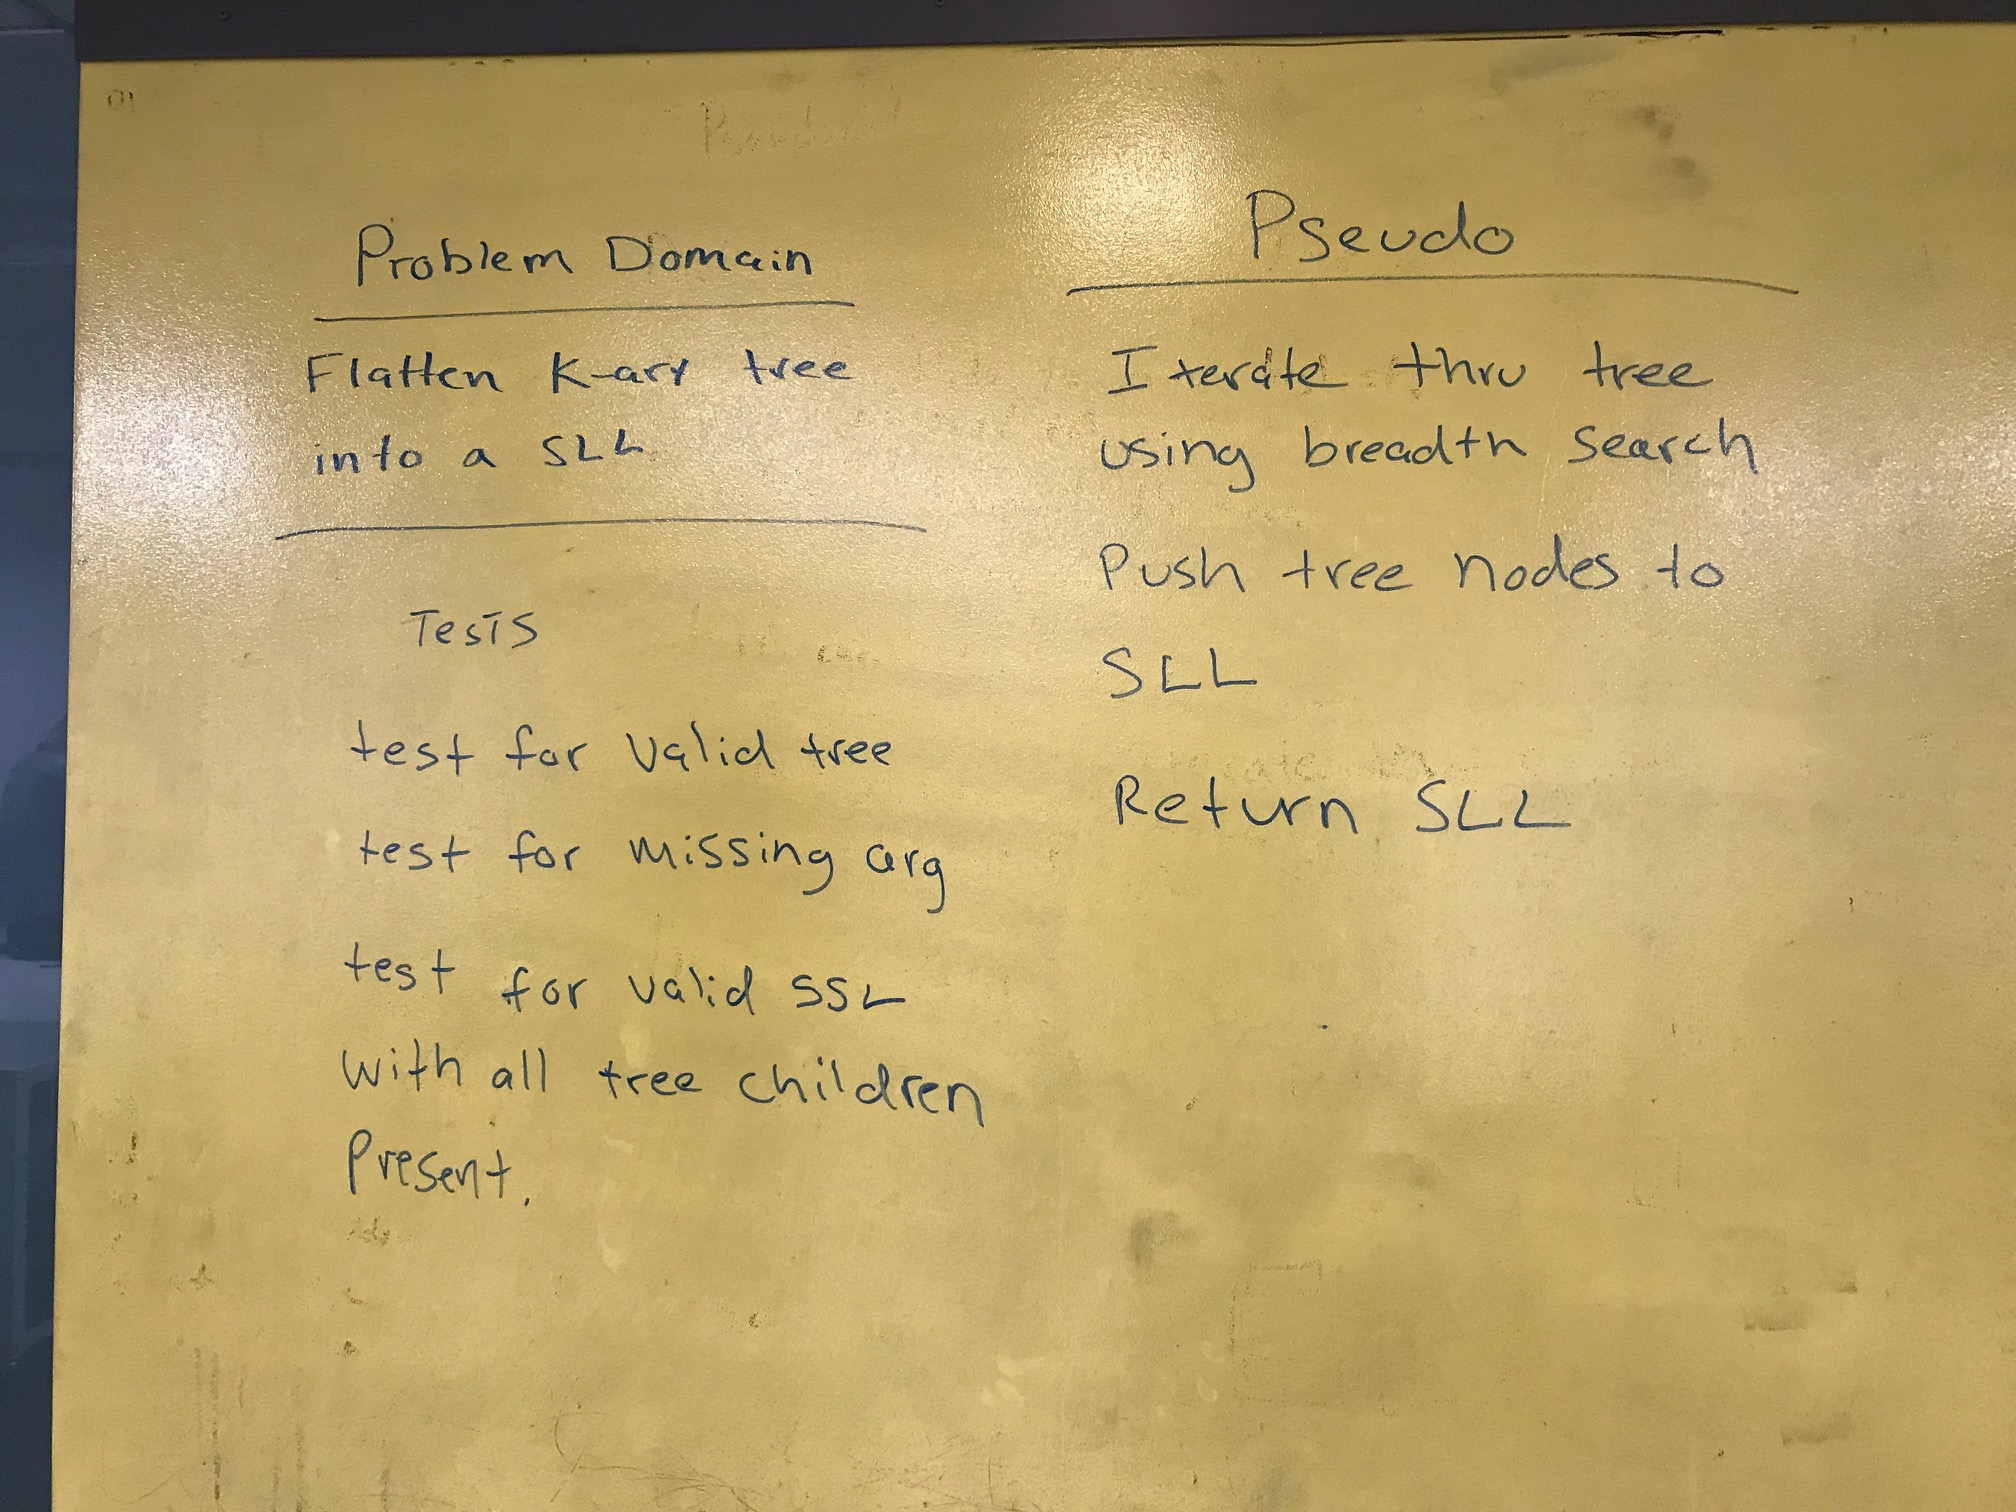 Problem Domain
Flatten K-ary tree
into a SLL
Tests
test for valid tree
test for missing arg
test for valid SSL
with all tree children
Present.
Pseudo
Iterate thru tree
using breadth search
Push tree nodes to
SLL
Return SLL